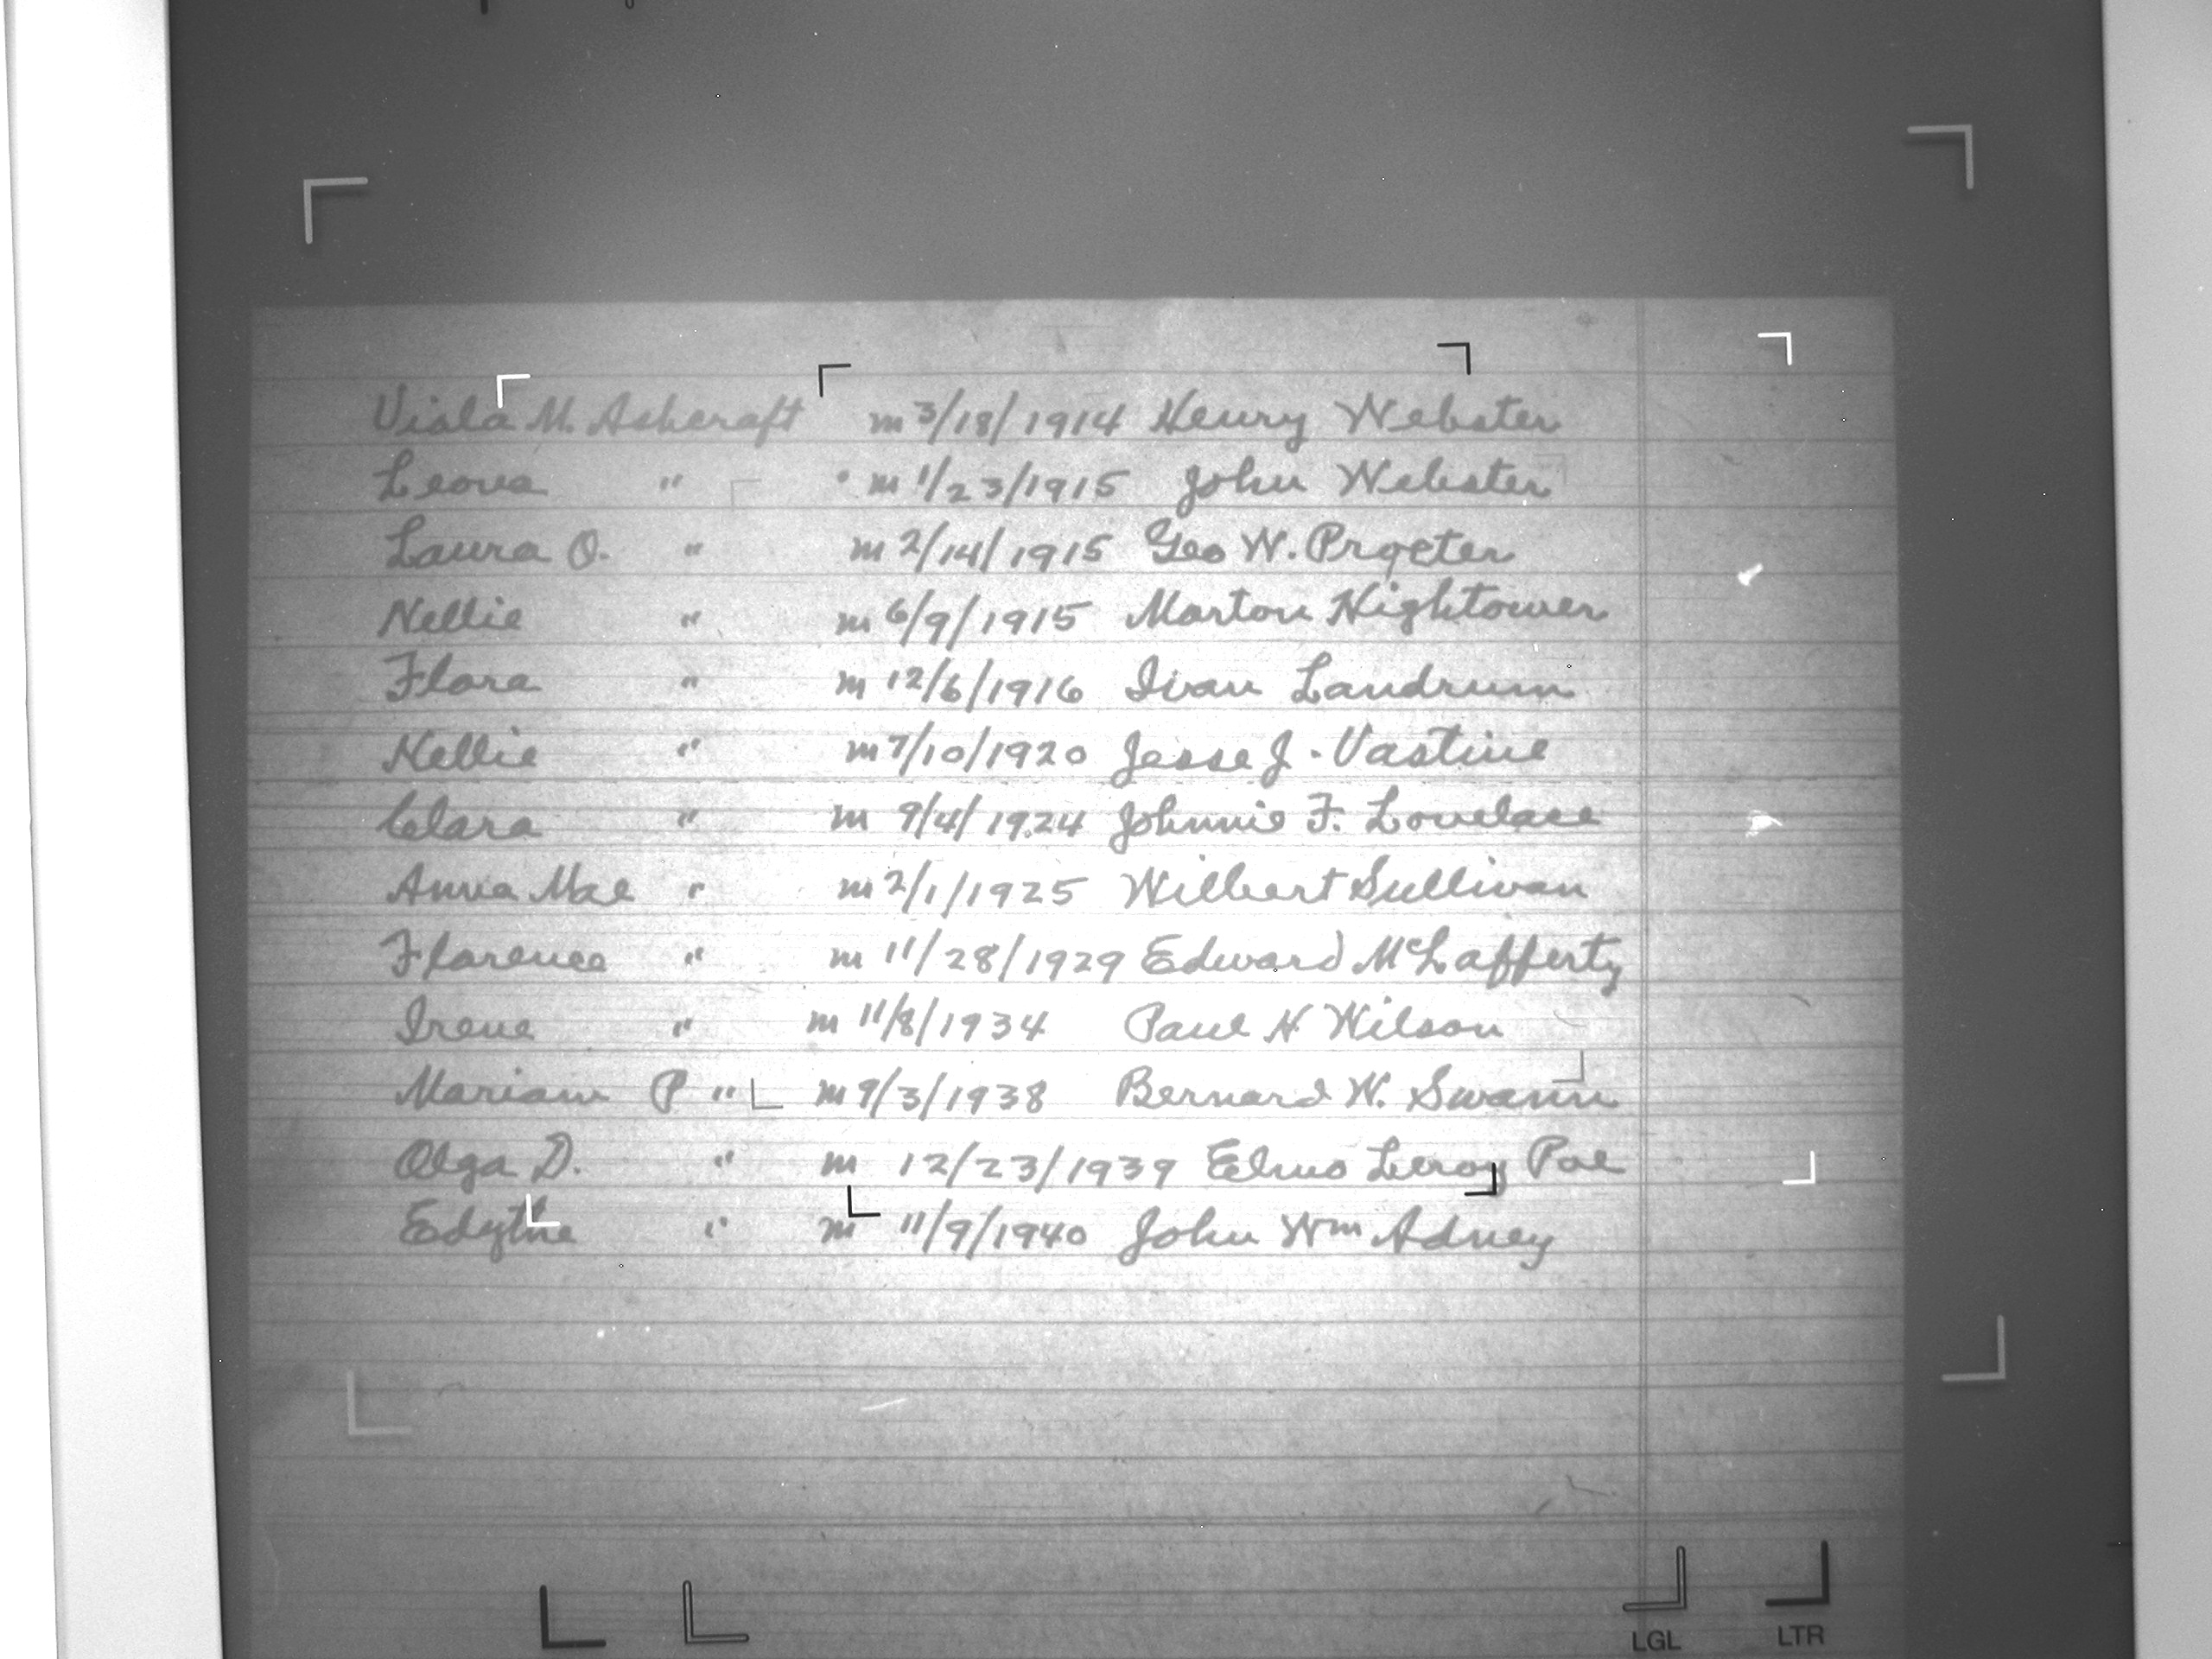 Viola M. Ashcraft m 3/18/1914 Henry Webster
Leona " m 1/23/1915 John Webster
Laura O. " m 2/14/1915 Geo W. Procter
Nellie " m 6/9/1915 Morton Hightower
Flora " m 12/6/1916 Ivan Landrum
Nellie " m 7/10/1920 Jesse J. Vastine
Clara " m 9/4/1924 Johnnie F. Lovelace
Anna Mae " m 2/1/1925 Wilbert Sullivan
Florence " m 11/28/1929 Edward McLafferty
Irene " m 11/8/1934 Paul H Wilson
Mariam P " m 9/3/1938 Bernard W. Swann
Olga D. " m 12/23/1939 Elmo Leroy Poe
Edythe " m 11/9/1940 John Wm Adney
LGL LTR